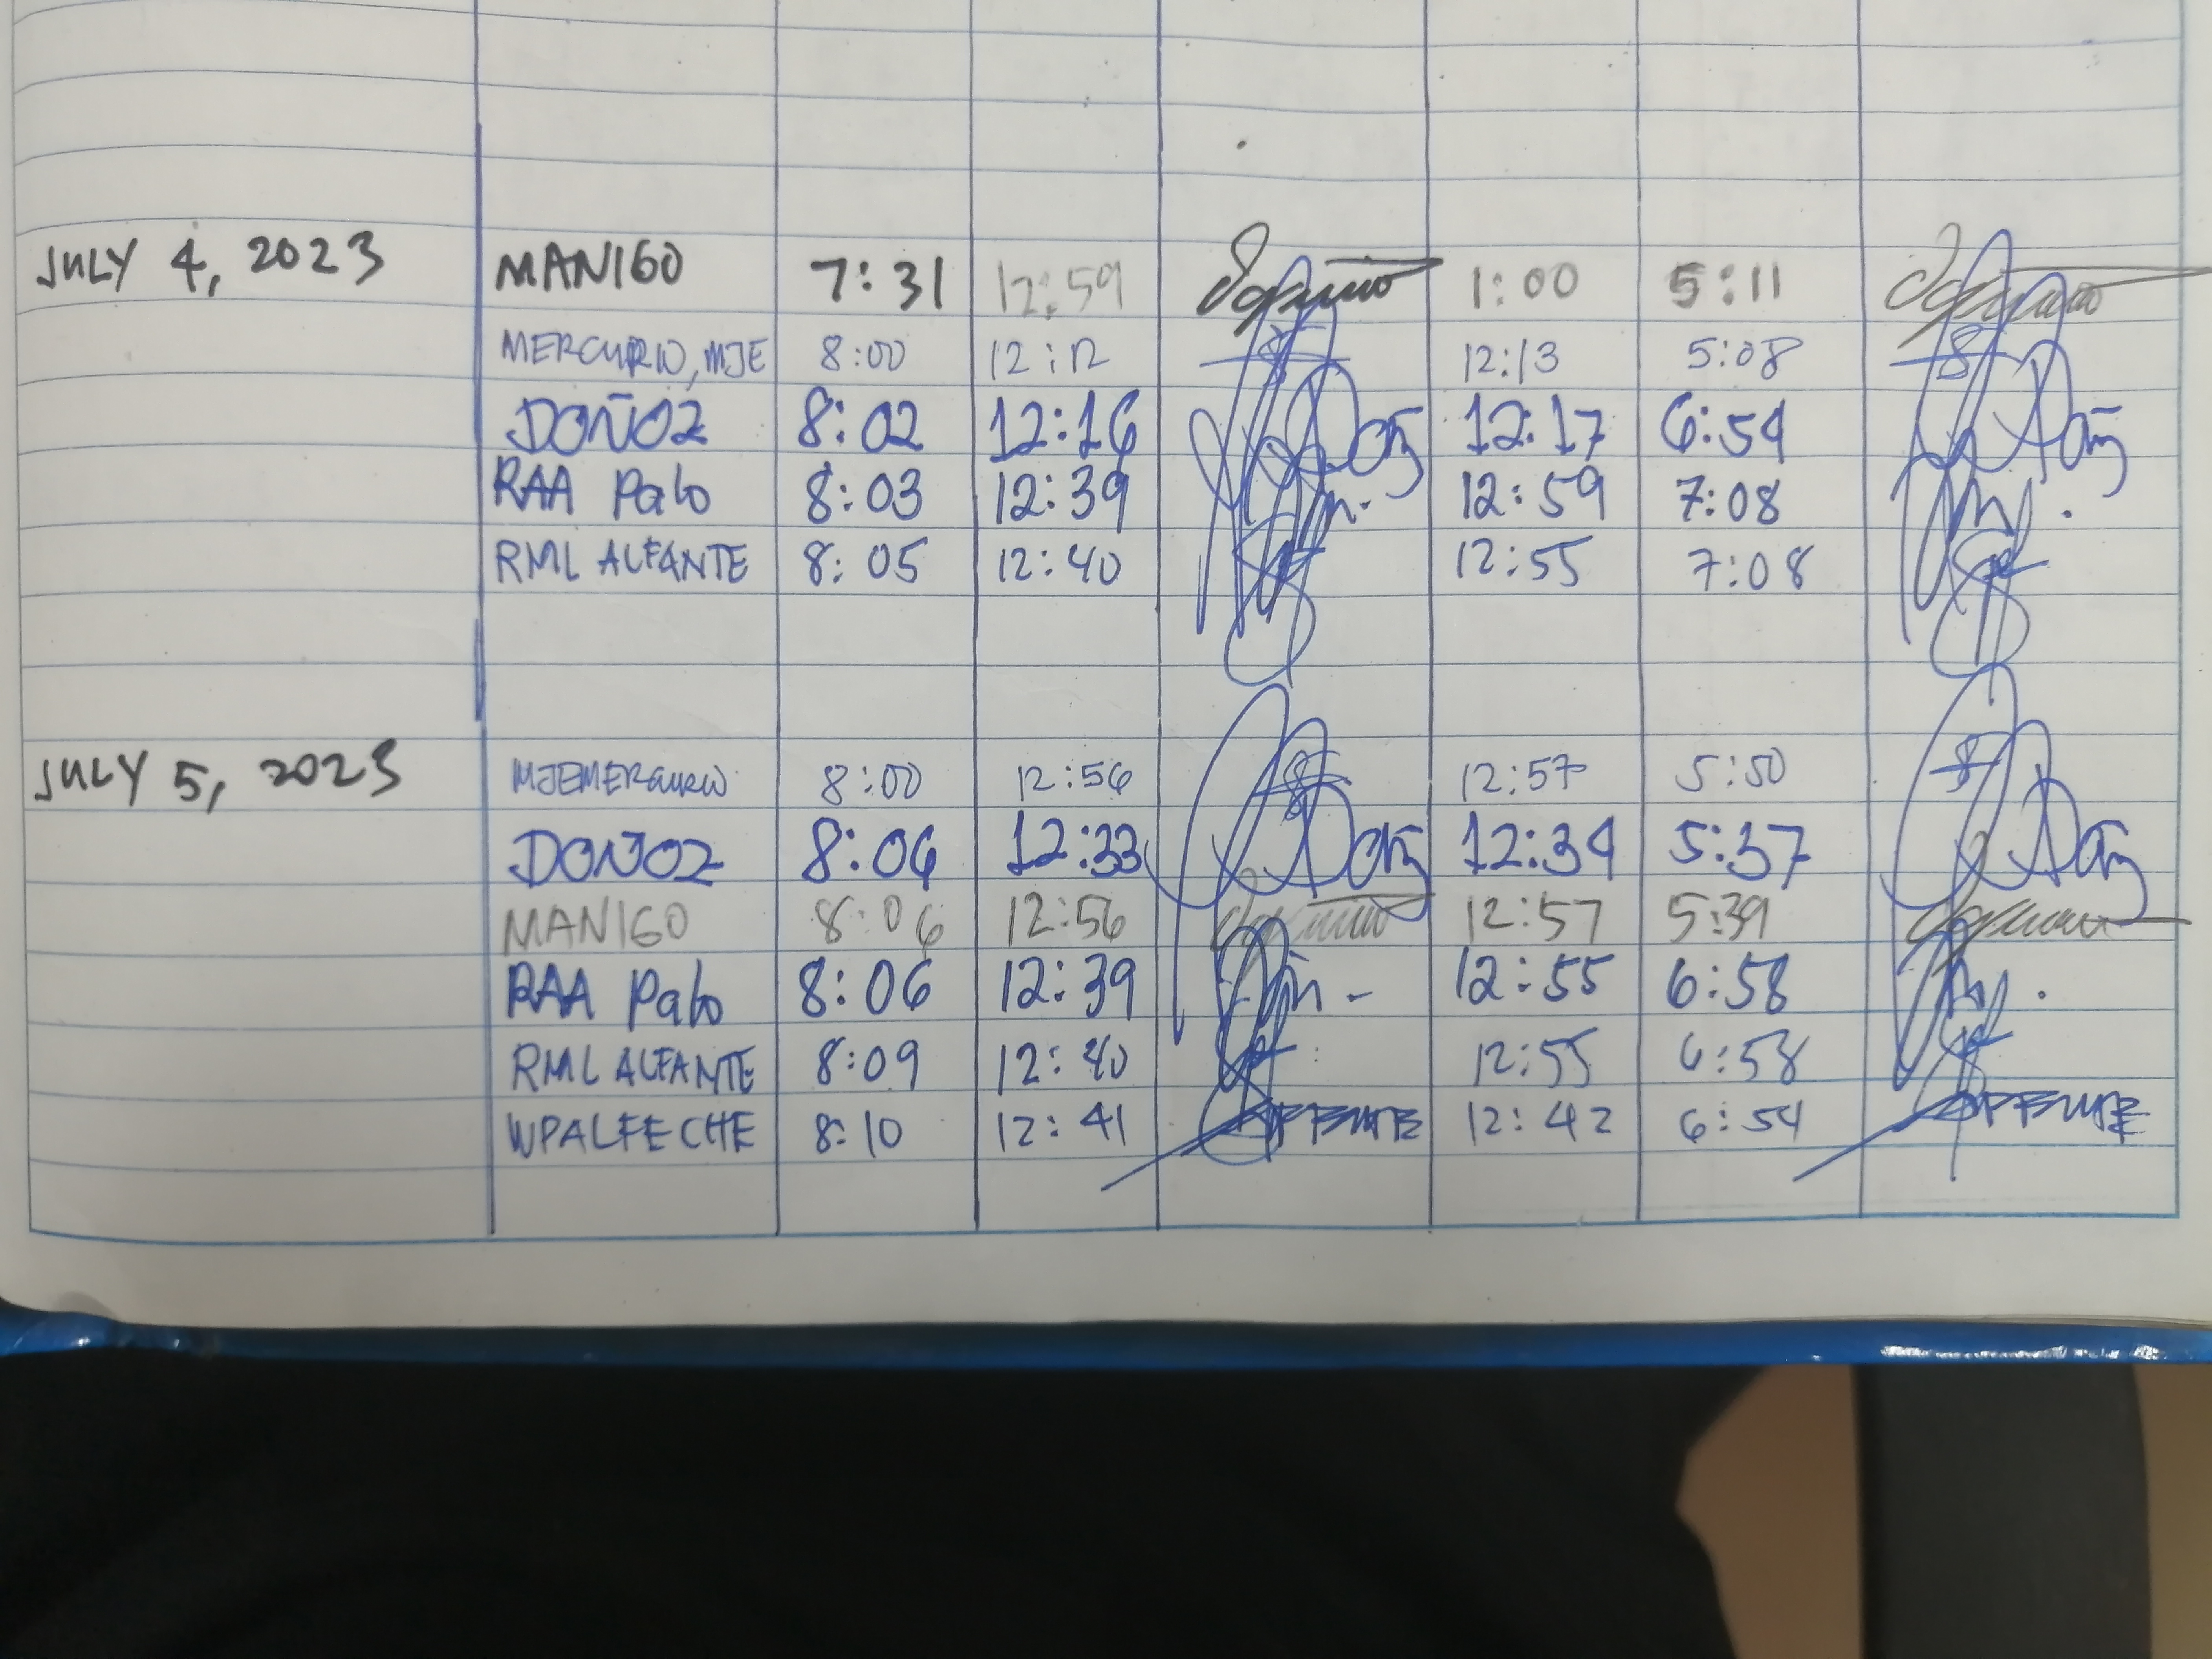 JULY 4, 2023 MANIGO 7:31 12:59 1:00 5:11
MERCURIO, MJE 8:00 12:12 12:13 5:08
DOÑOZ 8:02 12:16 12:17 6:54
RAA Palo 8:03 12:39 12:59 7:08
RML ALFANTE 8:05 12:40 12:55 7:08
JULY 5, 2023 MJEMERCURIO 8:00 12:56 12:57 5:50
DOÑOZ 8:04 12:33 12:34 5:37
MANIGO 8:06 12:56 12:57 5:39
RAA Palo 8:06 12:39 12:55 6:58
RML ALFANTE 8:09 12:40 12:55 6:58
WPALFECHE 8:10 12:41 12:42 6:54